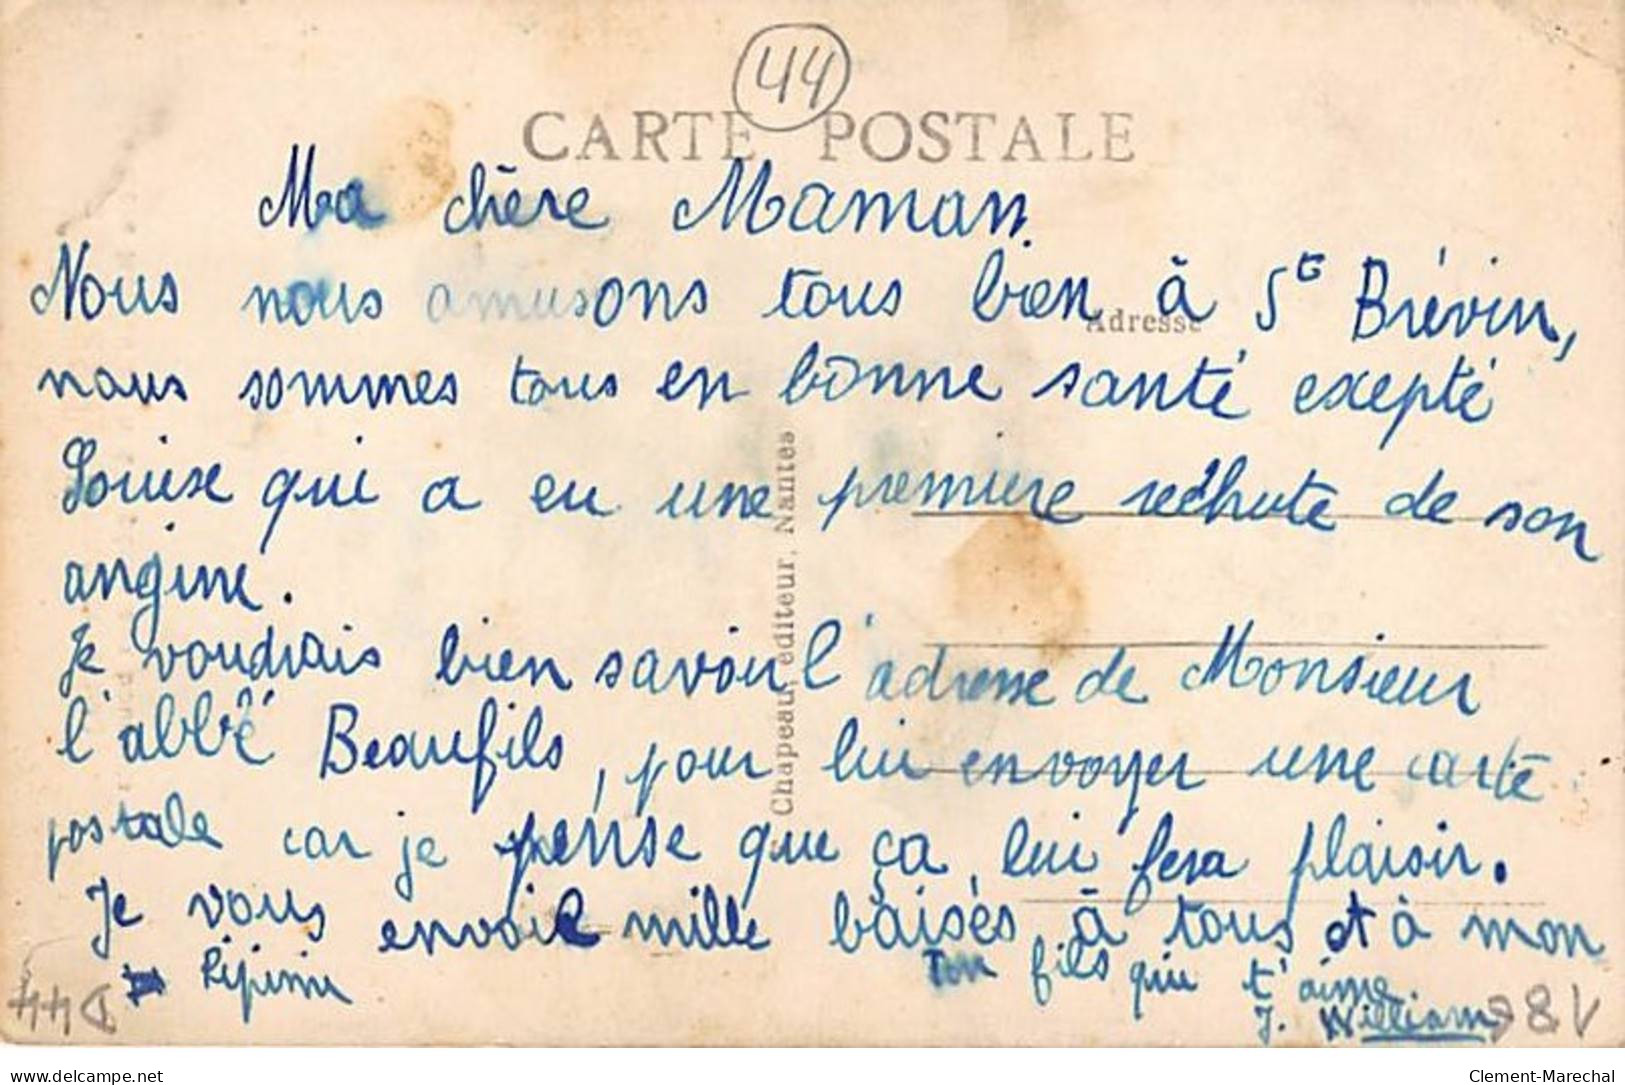 44
CARTE POSTALE
Ma chère Maman
Nous nous amusons tous bien à St Brévin,
Adresse
nous sommes tous en bonne santé exepté
Louise qui a eu une premiere rechute de son
angine.
Je voudrais bien savoir l'adresse de Monsieur
l'abbé Beaufils, pour lui envoyer une carte
postale car je pense que ça lui fera plaisir.
Je vous envoie mille baisés à tous et à mon
Ton fils qui t'aime
J. William
Chapeau, éditeur, Nantes
44D
delcampe.net
Clement-Marechal